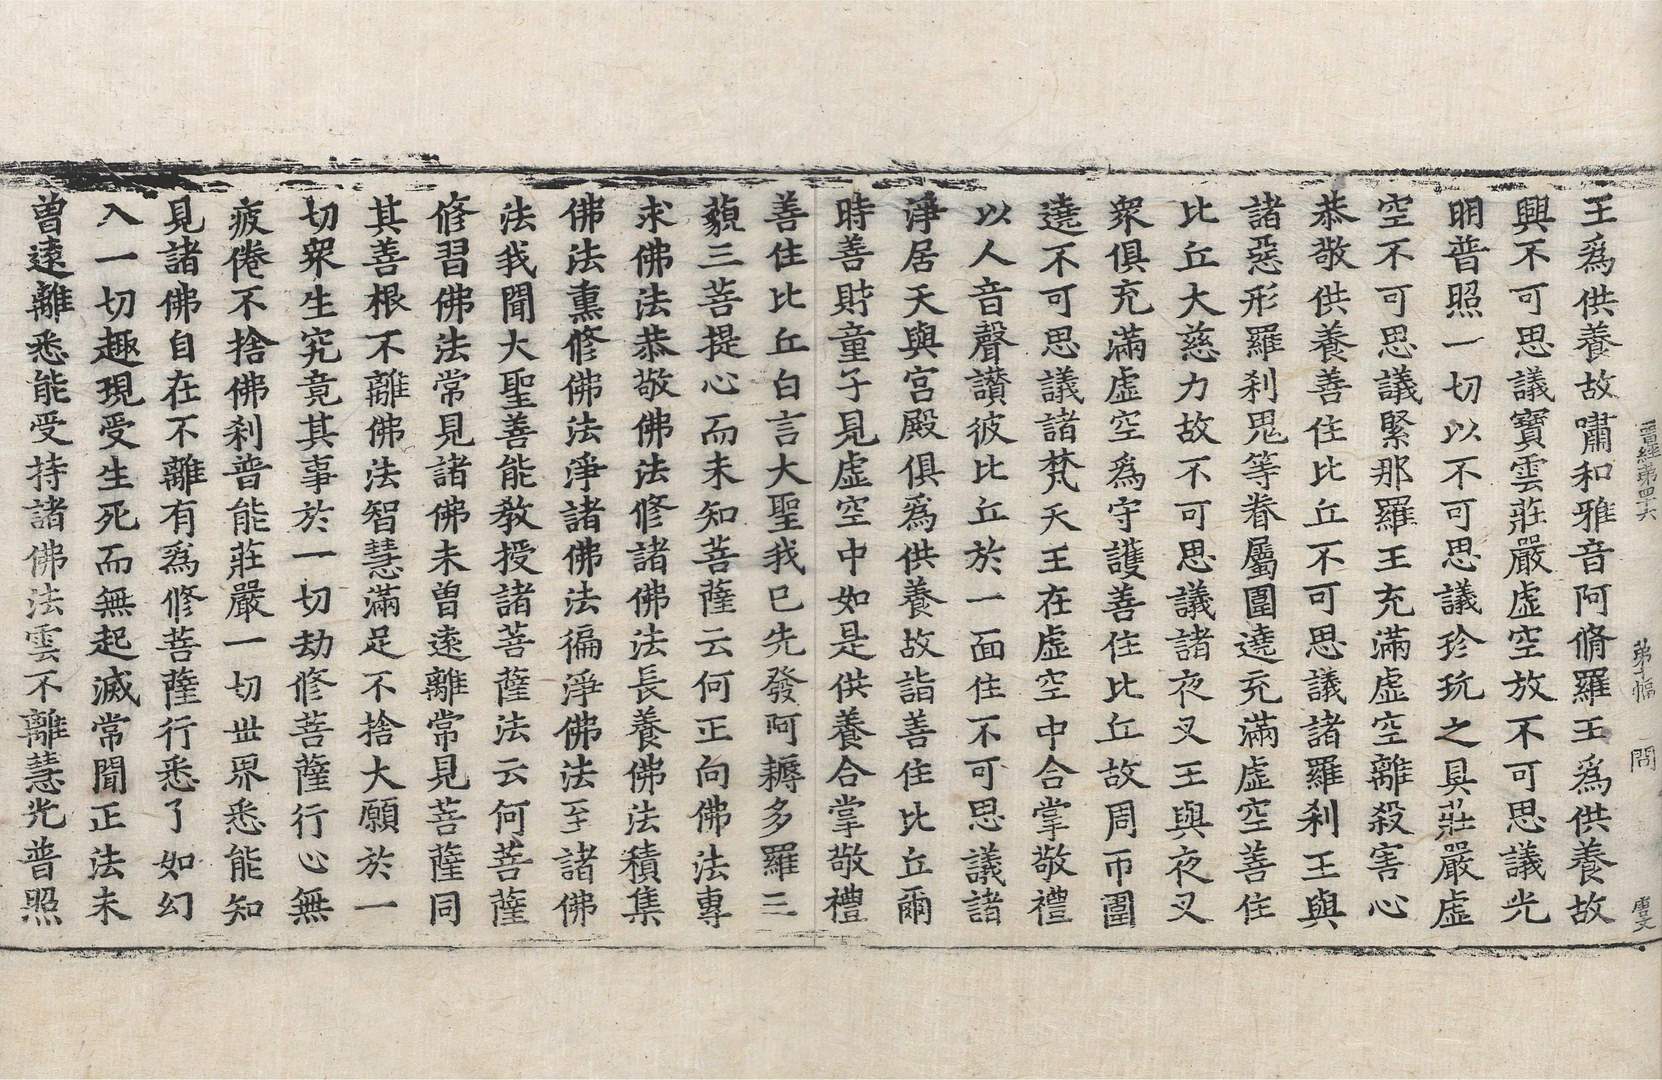 王爲供養故嘯和雅音阿脩羅王爲供養故
興不可思議寶雲莊嚴虛空放不可思議光
明普照一切以不可思議珍玩之具莊嚴虛
空不可思議緊那羅王充滿虛空離殺害心
恭敬供養善住比丘不可思議諸羅刹王與
諸惡形羅刹鬼等眷屬圍遶充滿虛空善住
比丘大慈力故不可思議諸夜叉王與夜叉
衆俱充滿虛空爲守護善住比丘故周帀圍
遶不可思議諸梵天王在虛空中合掌敬禮
以人音聲讃彼比丘於一面住不可思議諸
淨居天與宮殿俱爲供養故詣善住比丘爾
時善財童子見虛空中如是供養合掌敬禮
善住比丘白言大聖我已先發阿耨多羅三
藐三菩提心而未知菩薩云何正向佛法專
求佛法恭敬佛法修諸佛法長養佛法積集
佛法熏修佛法淨諸佛法徧淨佛法至諸佛
法我聞大聖善能敎授諸菩薩法云何菩薩
修習佛法常見諸佛未曽遠離常見菩薩同
其善根不離佛法智慧滿足不捨大願於一
切衆生究竟其事於一切劫修菩薩行心無
疲倦不捨佛刹普能莊嚴一切世界悉能知
見諸佛自在不離有爲修菩薩行悉了如幻
入一切趣現受生死而無起滅常聞正法未
曽遠離悉能受持諸佛法雲不離慧光普照